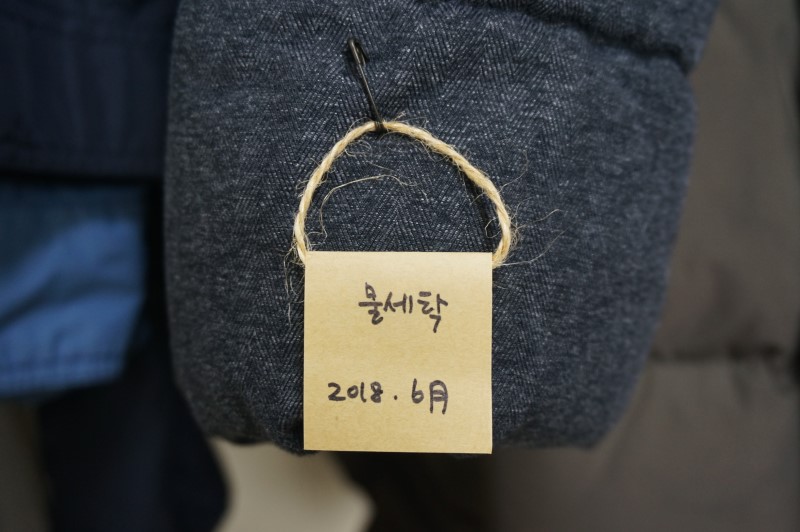 물세탁
2018. 6月